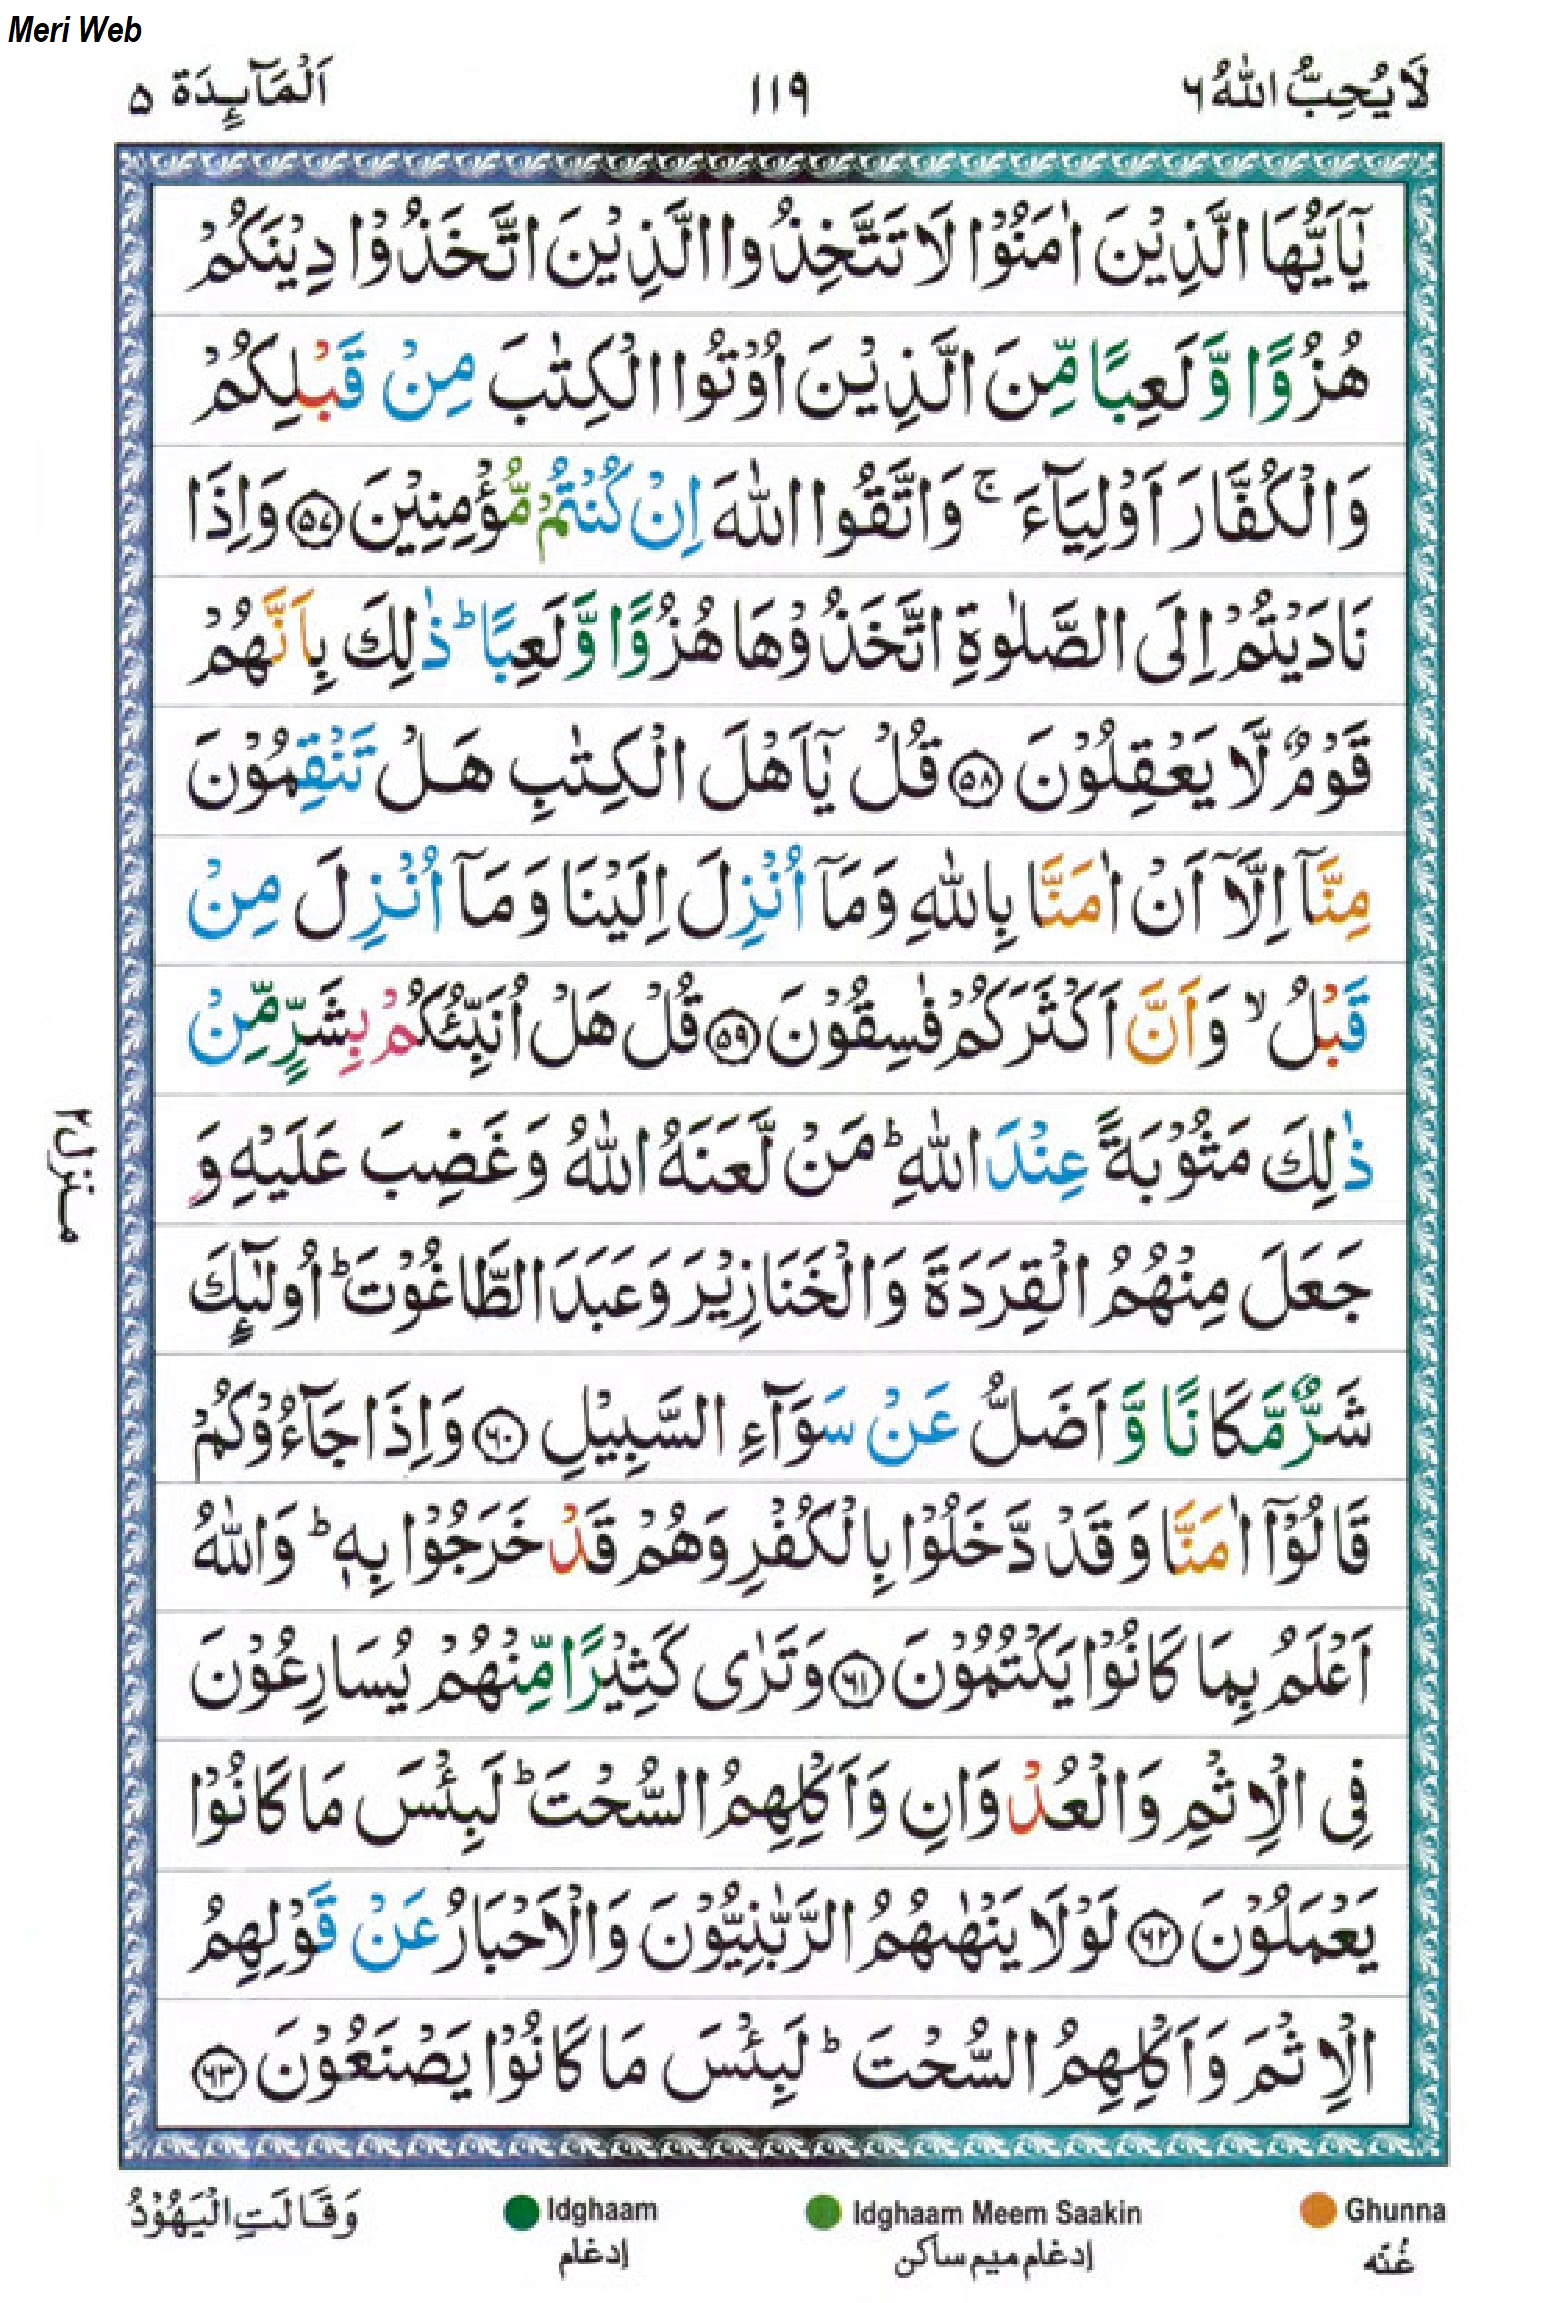 Meri Web
لَا يُحِبُّ اللّٰهُ ٦
١١٩
اَلْمَآىِٕدَة ٥
يٰۤاَيُّهَا الَّذِيْنَ اٰمَنُوْا لَا تَتَّخِذُوا الَّذِيْنَ اتَّخَذُوْا دِيْنَكُمْ
هُزُوًا وَّ لَعِبًا مِّنَ الَّذِيْنَ اُوْتُوا الْكِتٰبَ مِنْ قَبْلِكُمْ
وَالْكُفَّارَ اَوْلِيَآءَ ۚ وَاتَّقُوا اللّٰهَ اِنْ كُنْتُمْ مُّؤْمِنِيْنَ ﴿٥٧﴾ وَاِذَا
نَادَيْتُمْ اِلَى الصَّلٰوةِ اتَّخَذُوْهَا هُزُوًا وَّلَعِبًا ؕ ذٰلِكَ بِاَنَّهُمْ
قَوْمٌ لَّا يَعْقِلُوْنَ ﴿٥٨﴾ قُلْ يٰۤاَهْلَ الْكِتٰبِ هَلْ تَنْقِمُوْنَ
مِنَّاۤ اِلَّاۤ اَنْ اٰمَنَّا بِاللّٰهِ وَمَاۤ اُنْزِلَ اِلَيْنَا وَمَاۤ اُنْزِلَ مِنْ
قَبْلُ ۙ وَاَنَّ اَكْثَرَكُمْ فٰسِقُوْنَ ﴿٥٩﴾ قُلْ هَلْ اُنَبِّئُكُمْ بِشَرٍّ مِّنْ
ذٰلِكَ مَثُوْبَةً عِنْدَ اللّٰهِ ؕ مَنْ لَّعَنَهُ اللّٰهُ وَغَضِبَ عَلَيْهِ وَ
جَعَلَ مِنْهُمُ الْقِرَدَةَ وَالْخَنَازِيْرَ وَعَبَدَ الطَّاغُوْتَ ؕ اُولٰٓىِٕكَ
شَرٌّ مَّكَانًا وَّ اَضَلُّ عَنْ سَوَآءِ السَّبِيْلِ ﴿٦٠﴾ وَاِذَا جَآءُوْكُمْ
قَالُوْۤا اٰمَنَّا وَقَدْ دَّخَلُوْا بِالْكُفْرِ وَهُمْ قَدْ خَرَجُوْا بِهٖ ؕ وَاللّٰهُ
اَعْلَمُ بِمَا كَانُوْا يَكْتُمُوْنَ ﴿٦١﴾ وَتَرٰى كَثِيْرًا مِّنْهُمْ يُسَارِعُوْنَ
فِى الْاِثْمِ وَالْعُدْوَانِ وَاَكْلِهِمُ السُّحْتَ ؕ لَبِئْسَ مَا كَانُوْا
يَعْمَلُوْنَ ﴿٦٢﴾ لَوْلَا يَنْهٰىهُمُ الرَّبّٰنِيُّوْنَ وَالْاَحْبَارُ عَنْ قَوْلِهِمُ
الْاِثْمَ وَاَكْلِهِمُ السُّحْتَ ؕ لَبِئْسَ مَا كَانُوْا يَصْنَعُوْنَ ﴿٦٣﴾
منزل ٢
وَقَالَتِ الْيَهُوْدُ
Idghaam
إدغام
Idghaam Meem Saakin
إدغام ميم ساكن
Ghunna
غُنّه